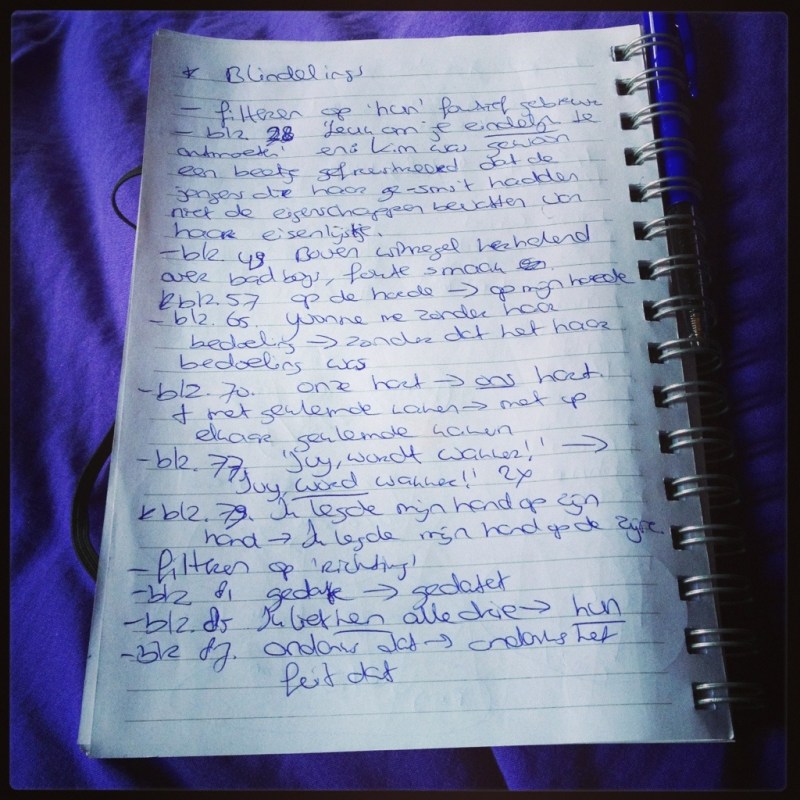 * Blindelings
- filteren op 'hun' foutief gebruik
- blz. 28 'Leuk om je eindelijk te
ontmoeten' en: Kim was gewoon
een beetje gefrustreerd dat de
jongens die haar ge-sms't hadden
niet de eigenschappen bevatten van
haar eisenlijstje.
- blz. 49 Boven witregel herhalend
over badboys, foute smaak
* blz. 57 op de hoede → op mijn hoede
- blz. 65. Yvonne me zonder haar
bedoeling → zonder dat het haar
bedoeling was
- blz. 70. onze hart → ons hart.
+ met geklemde kaken → met op
elkaar geklemde kaken
- blz. 77. 'Juy, wordt wakker!' →
'Juy, word wakker!' 2x
* blz. 79. Ik legde mijn hand op zijn
hand → Ik legde mijn hand op de zijne.
- filteren op 'richting'
- blz 81 gedate → gedatet
- blz. 85 hen alledrie → hun
- blz 87. ondanks dat → ondanks het
feit dat